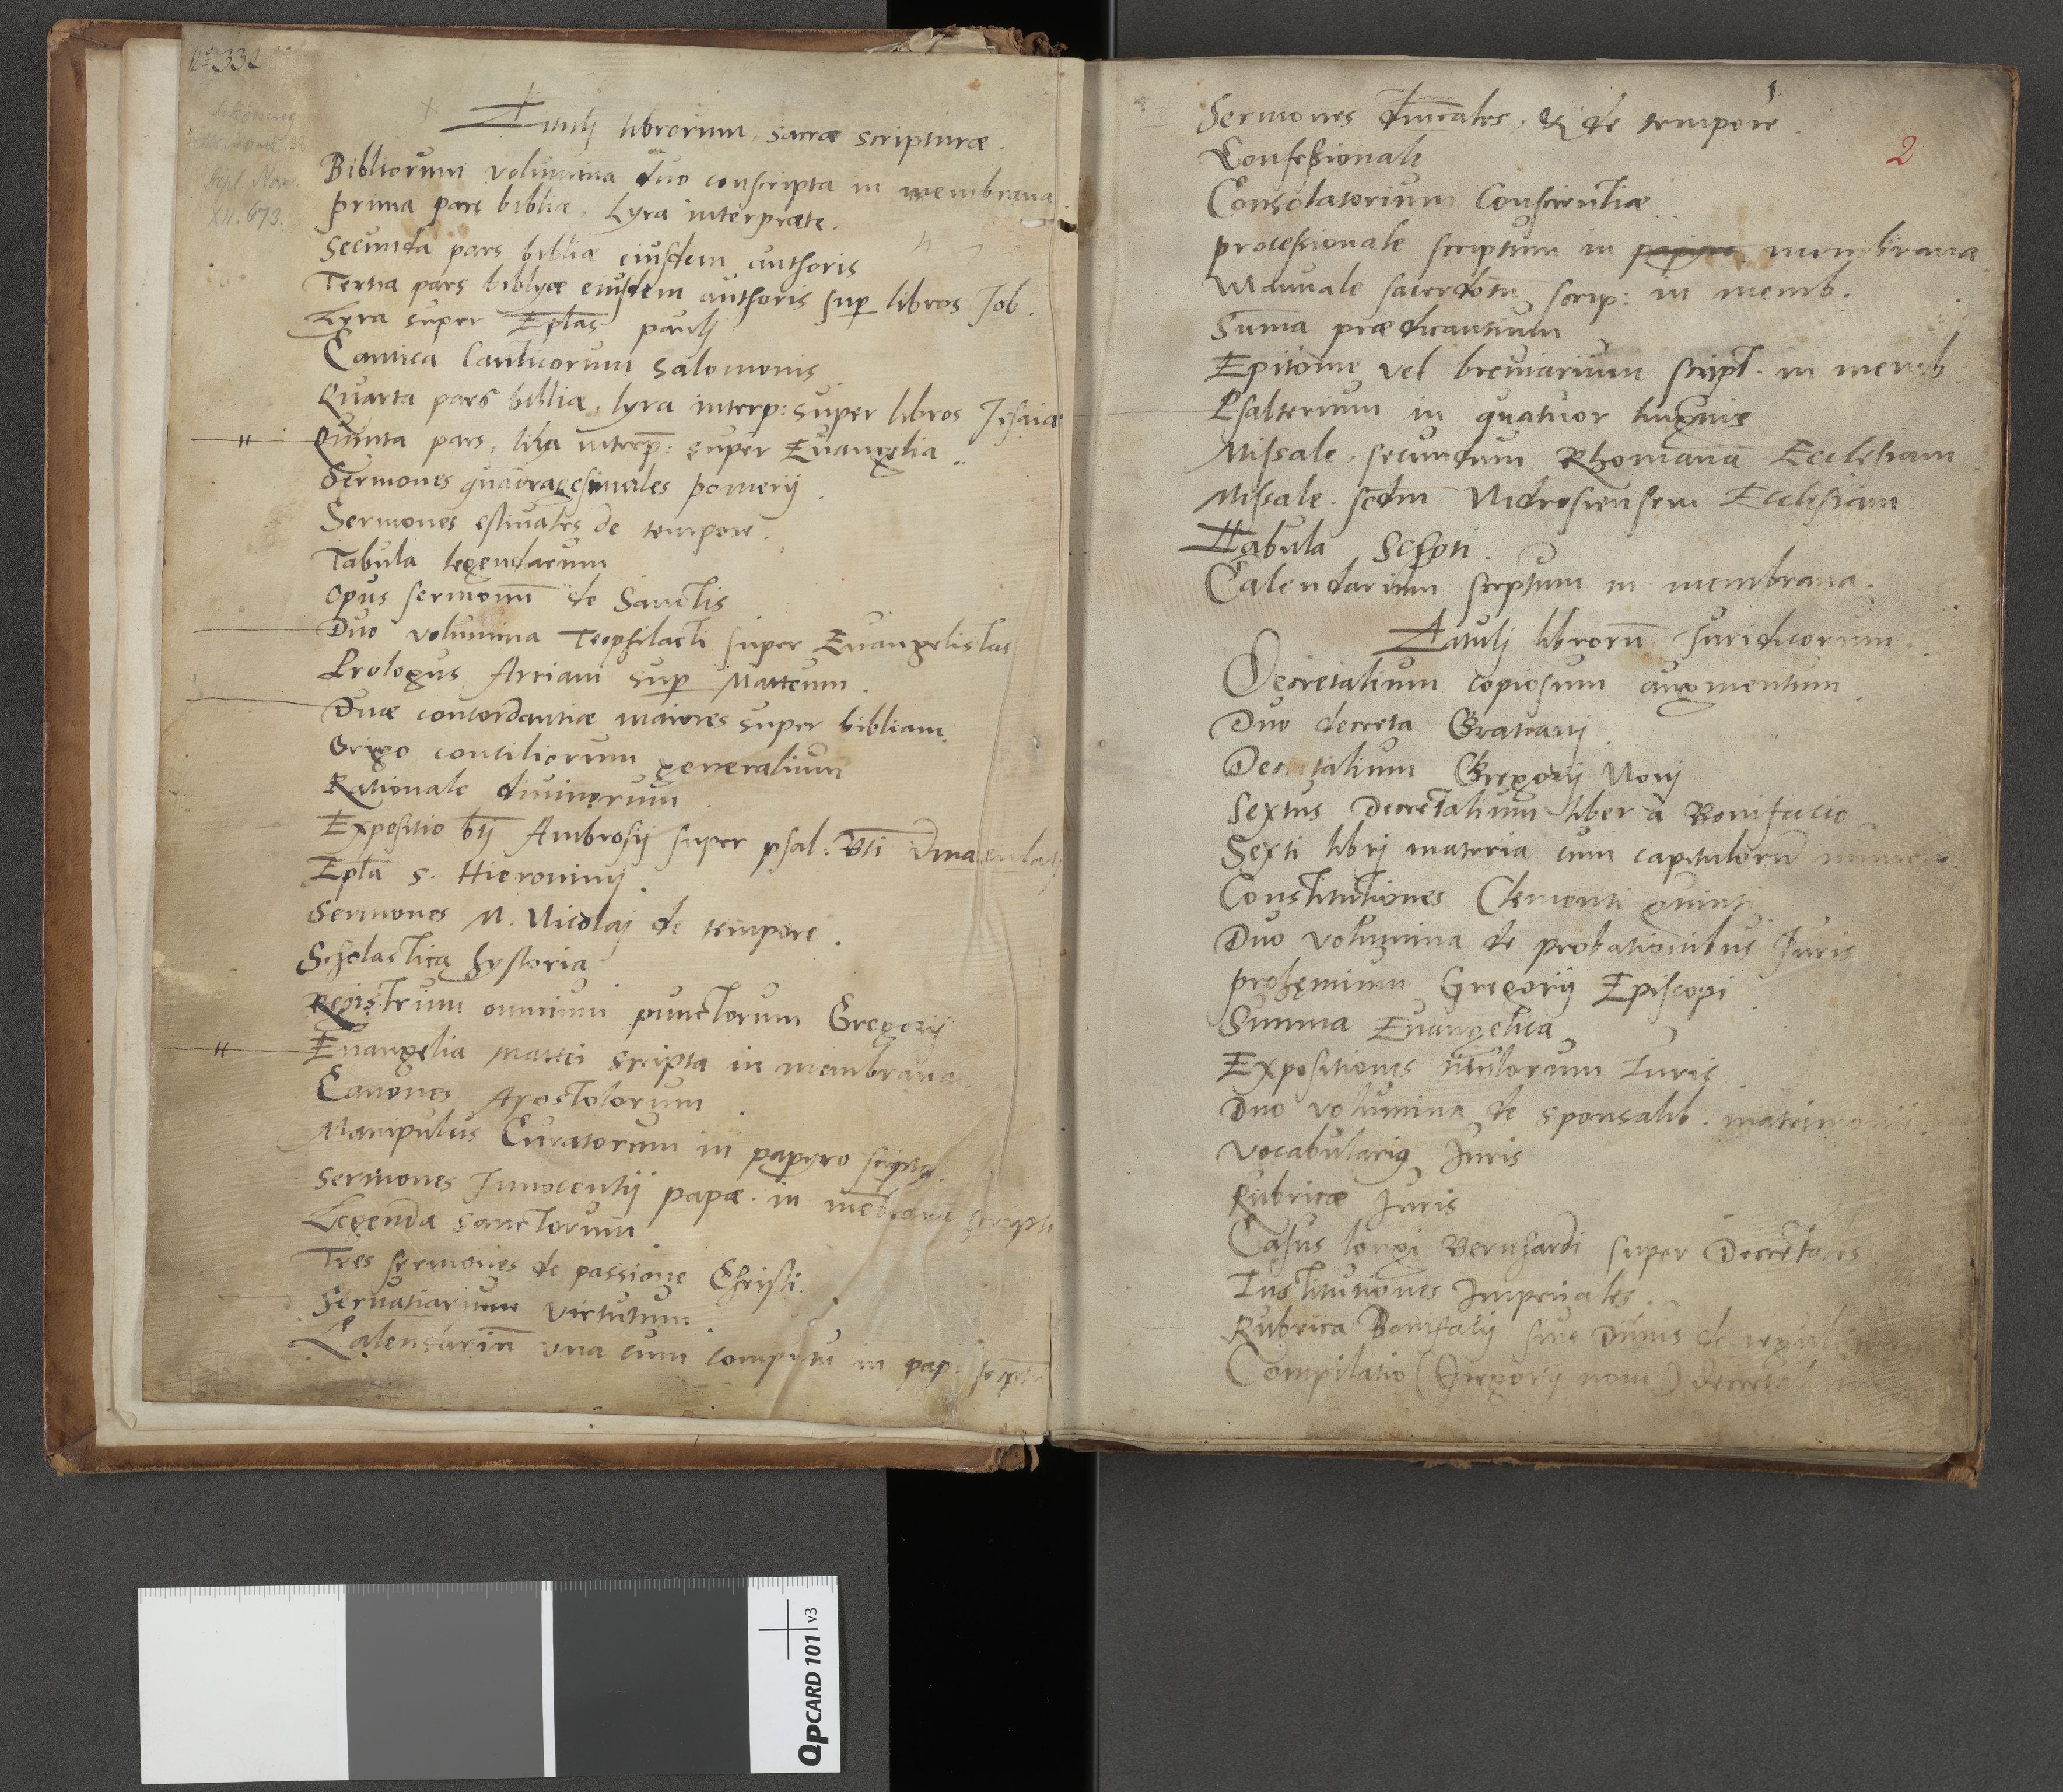 Nº 332
XII. 673.
Tituli librorum sacræ scripturæ.
Bibliorum volumina duo conscripta in membrana
prima pars bibliæ, Lyra interpræte.
Secunda pars bibliæ eiusdem authoris
Tertia pars biblyæ eiusdem authoris sup libros Job.
Lyra super Eplas paulj
Cantica Canticorum Salomonis
Quarta pars bibliæ, lyra interp: super libros Jsaiæ
Quinta pars, lira interp: super Euangelia
Sermones quadragesimales pomerij
Sermones estiuales de tempore.
Tabula legendarum
Opus sermonum de Sanctis
Duo volumina Teophilacti super Euangelistas
Prologus Arriani sup Matteum.
Duæ concordantiæ maiores super bibliam.
Origo consiliorum generalium
Rationale diuinorum
Expositio bti Ambrosij super psal: Bti Immaculati
Epla S. Hieronimj
Sermones M. Nicolaj de tempore.
Scholastica hystoria
Registrum omnium punctorum Gregorij
Euangelia Mattei scripta in membrana
Canones Apostolorum
Manipulus Curatorum in papyro scripta.
Sermones Innocentij papæ in mebrana scripti
Legenda sanctorum
Tres sermones de passione Christi.
Seruatiarium virtutum
Calendariū vna cum computu in pap: scriptū
Sermones dnicales, & de tempore.
2
Confessionali
Consolatorium Conscientiæ
processionale scriptum in papyro membrana
Manuale sacerdotū scrip: in memb.
Summa prædicantium
Epitome vel breuiarium script. in memb
Psalterium in quatuor linguis
Missale secundum Rhomanā Ecclesiam
Missale scdm Nidrosiensem Ecclesiam
Tabula Scoti.
Calendarium scriptum in membrana.
Titulj librorū Juridicorum
Decretalium copiosum augmentum
Duo decreta Gratianj
Decretalium Gregorij Nonj
Sextus Decretalium liber a Bonifacio
Sexti librj materia cum capitulorū numero
Constitutiones Clementi quinti
Duo volumina de probationibus Juris
prohęmium Gregorij Episcopi
Summa Euangelica
Expositiones titulorum Iuris
Duo volumina de sponsalib. matrimonii
Vocabularius Juris
Rubricæ Juris
Casus longi Bernhardi super Decretales
Institutiones Imperiales
Rubrica Bonifacij siue Dinus de regul
Compilatio (Gregorij noni) decretalium
QpCARD 101 v3